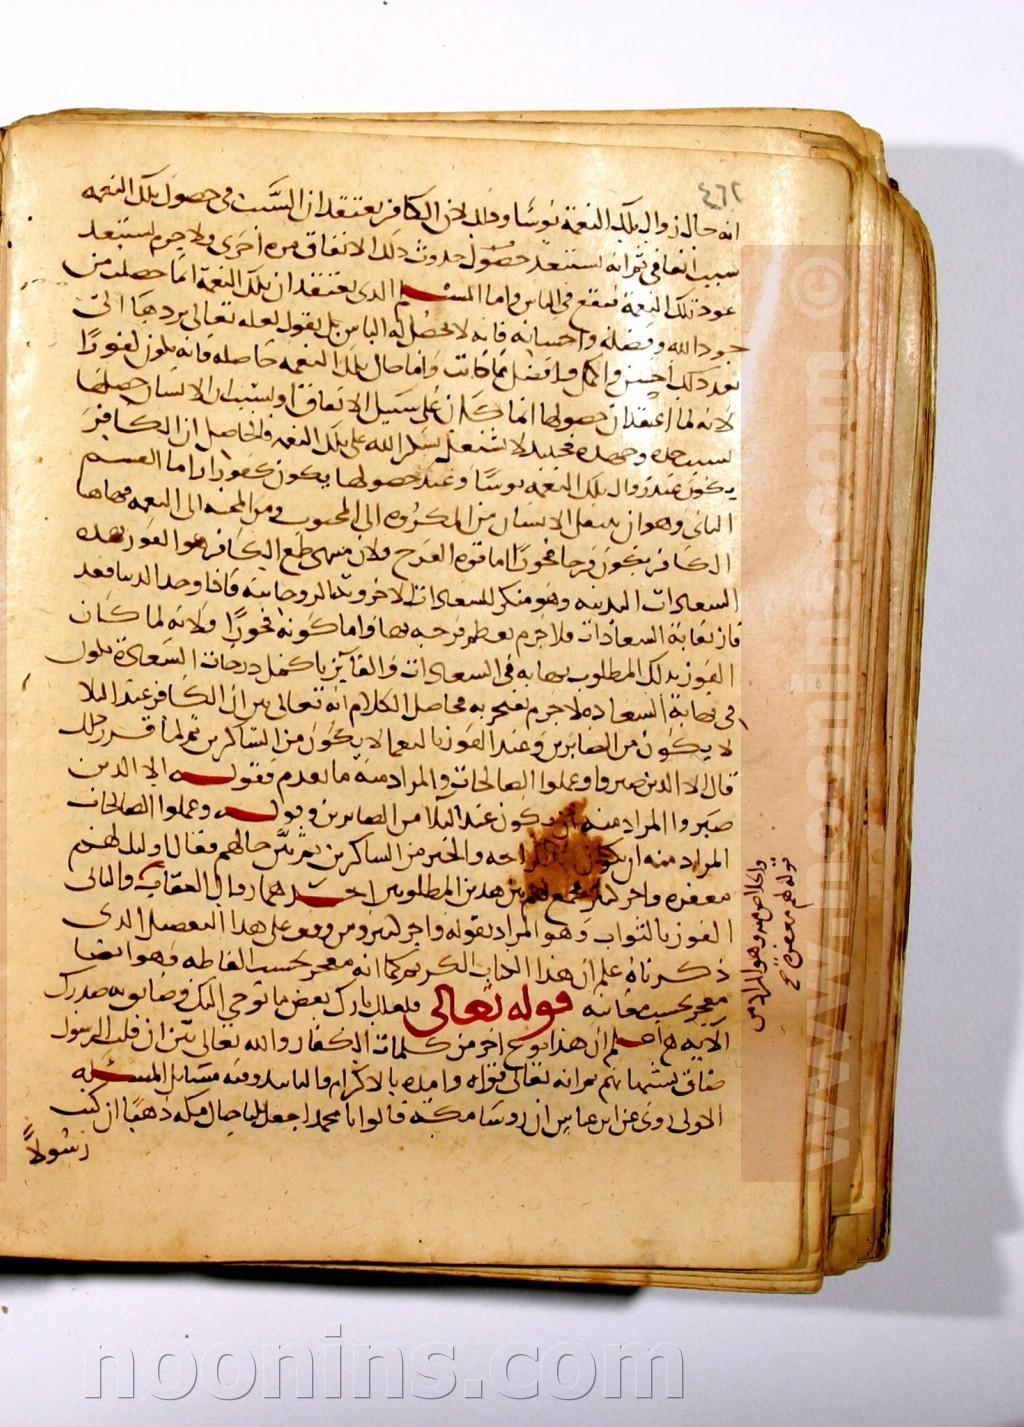 ٤٦٢
انه حال زوال تلك النعمة يؤسا وذلك لان الكافر يعتقد ان السبب في حصول تلك النعمه
سبب اتفاقي ثم انه يستبعد حصول حدوث ذلك الاتفاق مره اخرى ولا جرم يستبعد
عود تلك النعمة فيقع في الياس واما المسلم الذي يعتقد ان تلك النعمة انما حصلت من
جود الله وفضله واحسانه فانه لا يحصل له الياس بل يقول لعله تعالى يردها الي
بعد ذلك احسن واكمل وافضل مما كانت واما حال تلك النعمه حاصله فانه يكون كفورا
لانه لما اعتقد ان حصولها انما كان على سبيل الاتفاق او بسبب ان الانسان حصلها
بسبب جده وجهده فحينئذ لا يشتغل بشكر الله على تلك النعمه فالحاصل ان الكافر
يكون عند زوال تلك النعمه يوسا وعند حصولها يكون كفورا واما القسم
الثاني وهو ان ينتقل الانسان من المكروه الى المحبوب ومن المحنه الى النعمه فهاهنا
الكافر يكون فرحا فخورا اما قوه الفرح فلان منتهى طمع الكافر هو الفوز بهذه
السعادات البدنيه وهو منكر للسعادات الاخرويه الروحانيه فاذا وجد الدنيا فقد
فاز بغاية السعادات فلا جرم يعظم فرحه بها واما كونه فخورا فلانه لما كان
الفوز بذلك المطلوب نهايه في السعادات والفايز باكمل درجات السعادة يكون
في نهاية السعاده لا جرم يفتخر به فحاصل الكلام انه تعالى بين ان الكافر عند البلا
لا يكون من الصابرين وعند الفوز بالنعما لا يكون من الشاكرين ثم لما قرر ذلك
قال الا الذين صبروا وعملوا الصالحات والمراد منه ما تقدم فقوله الا الذين
صبروا المراد منه ان يكون عند البلا من الصابرين وقوله وعملوا الصالحات
المراد منه ان يكون عند الراحه والخير من الشاكرين ثم بين حالهم فقال اوليك لهم
مغفره واجر كبير فجمع لهم بين هذين المطلوبين احدهما زوال العقاب والثاني
الفوز بالثواب وهو المراد بقوله واجر كبير ومن وقف على هذا التفصيل الذي
ذكرناه علم ان هذا الكتاب الكريم كما انه معجز بحسب الفاظه فهو ايضا
معجز بحسب معانيه قوله تعالى فلعلك تارك بعض ما يوحي اليك وضائق به صدرك
الآيه اعلم ان هذا نوع اخر من كلمات الكفار والله تعالى بين ان قلب الرسول
ضاق بسببها ثم انه تعالى قواه وايده بالاكرام والتاييد وفيه مسائل المسئله
الاولى روى عن ابن عباس ان روسا مكة قالوا يا محمد اجعل لنا جبال مكه ذهبا ان كنت
رسولاً
وهو المراد من
قوله لهم مغفرة
www.noonins.com ©
noonins.com